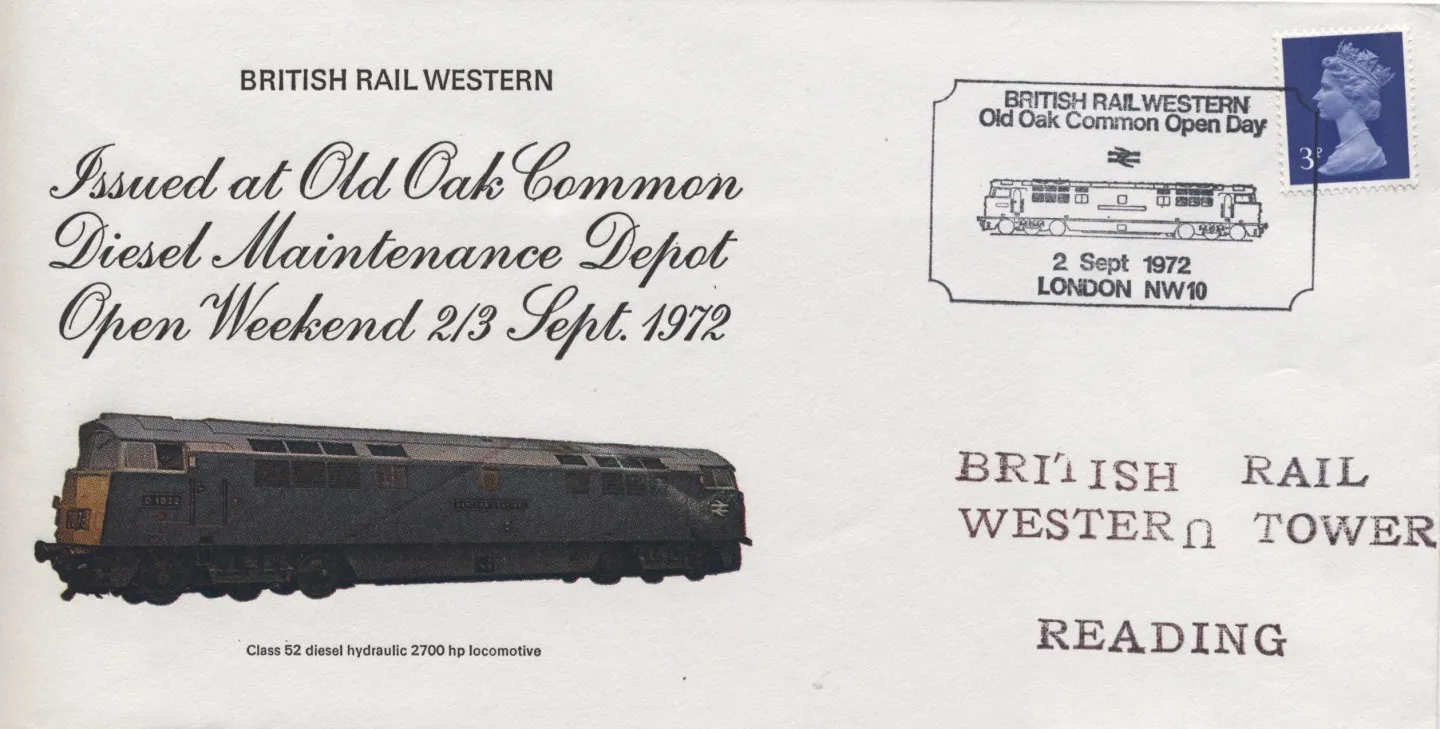 BRITISH RAIL WESTERN
Issued at Old Oak Common
Diesel Maintenance Depot
Open Weekend 2/3 Sept. 1972
Class 52 diesel hydraulic 2700 hp locomotive
BRITISH RAIL WESTERN
Old Oak Common Open Day
2 Sept 1972
LONDON NW10
3P
BRITISH RAIL
WESTERN TOWER
READING